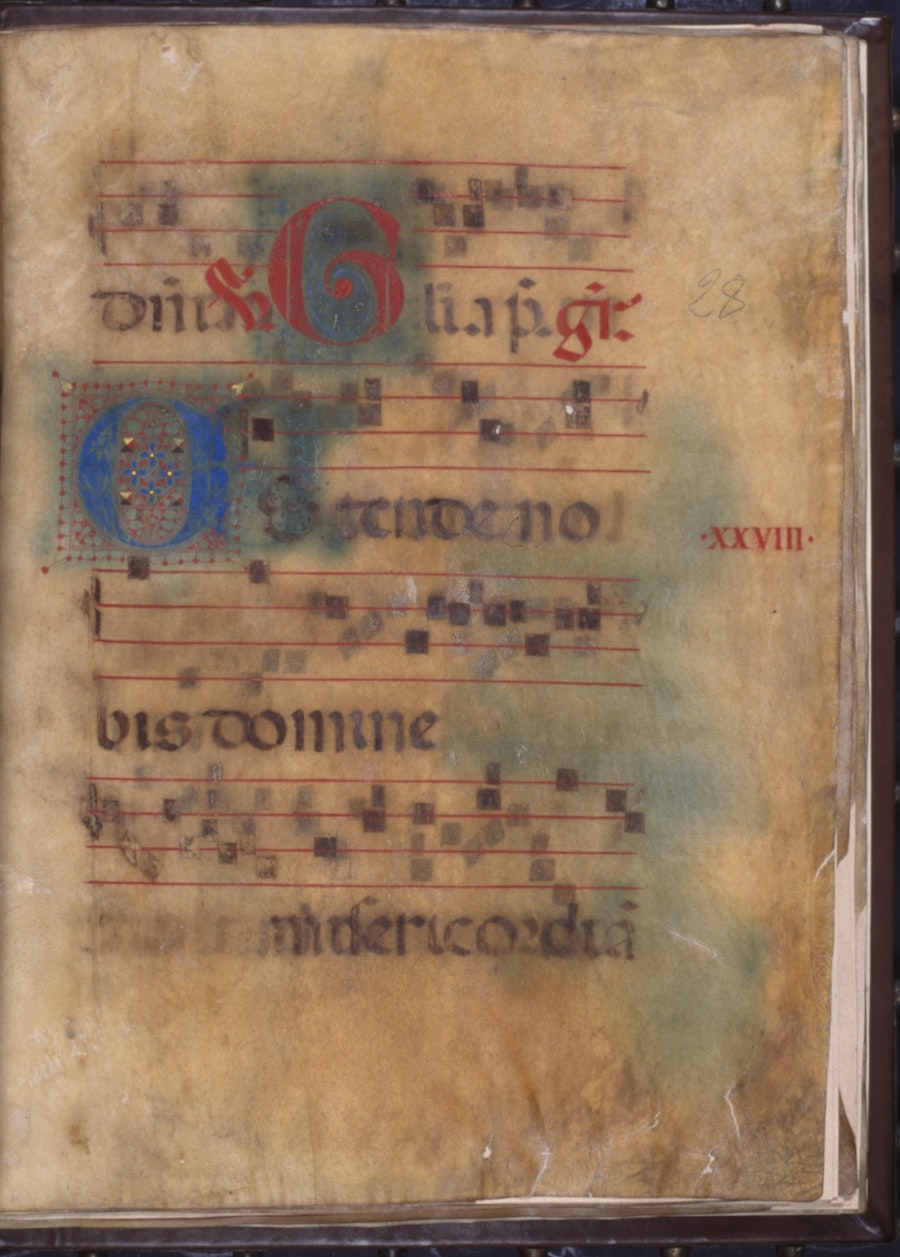 V. Glia p̄. gr̄.
28
Ostende no
·XXVIII·
bis domine
misericordiā